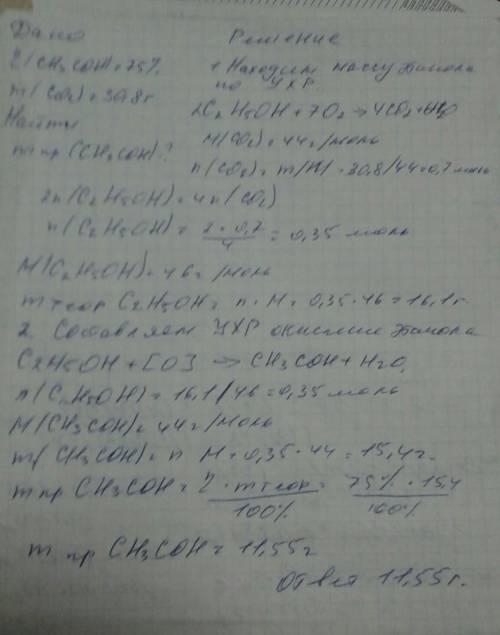 Дано
Решение
η(CH3COH)=75%
m(CO2)=30,8г
Найти
m пр (CH3COH)?
1. Находим массу этанола
по УХР
2C2H5OH+7O2→4CO2+6H2O
M(CO2)=44г/моль
n(CO2)=m/M=30,8/44=0,7 моль
2n(C2H5OH)=4n(CO2)
n(C2H5OH)=2*0,7/4=0,35 моль
M(C2H5OH)=46г/моль
m теор C2H5OH=n·M=0,35·46=16,1г
2. Составляем УХР окисление этанола
C2H5OH+[O]→CH3COH+H2O
n(C2H5OH)=16,1/46=0,35моль
M(CH3COH)=44г/моль
m(CH3COH)=n M=0,35*44=15,4г.
m пр CH3COH=η·m теор/100%=75%·15,4/100%
m пр CH3COH=11,55г
Ответ 11,55г.